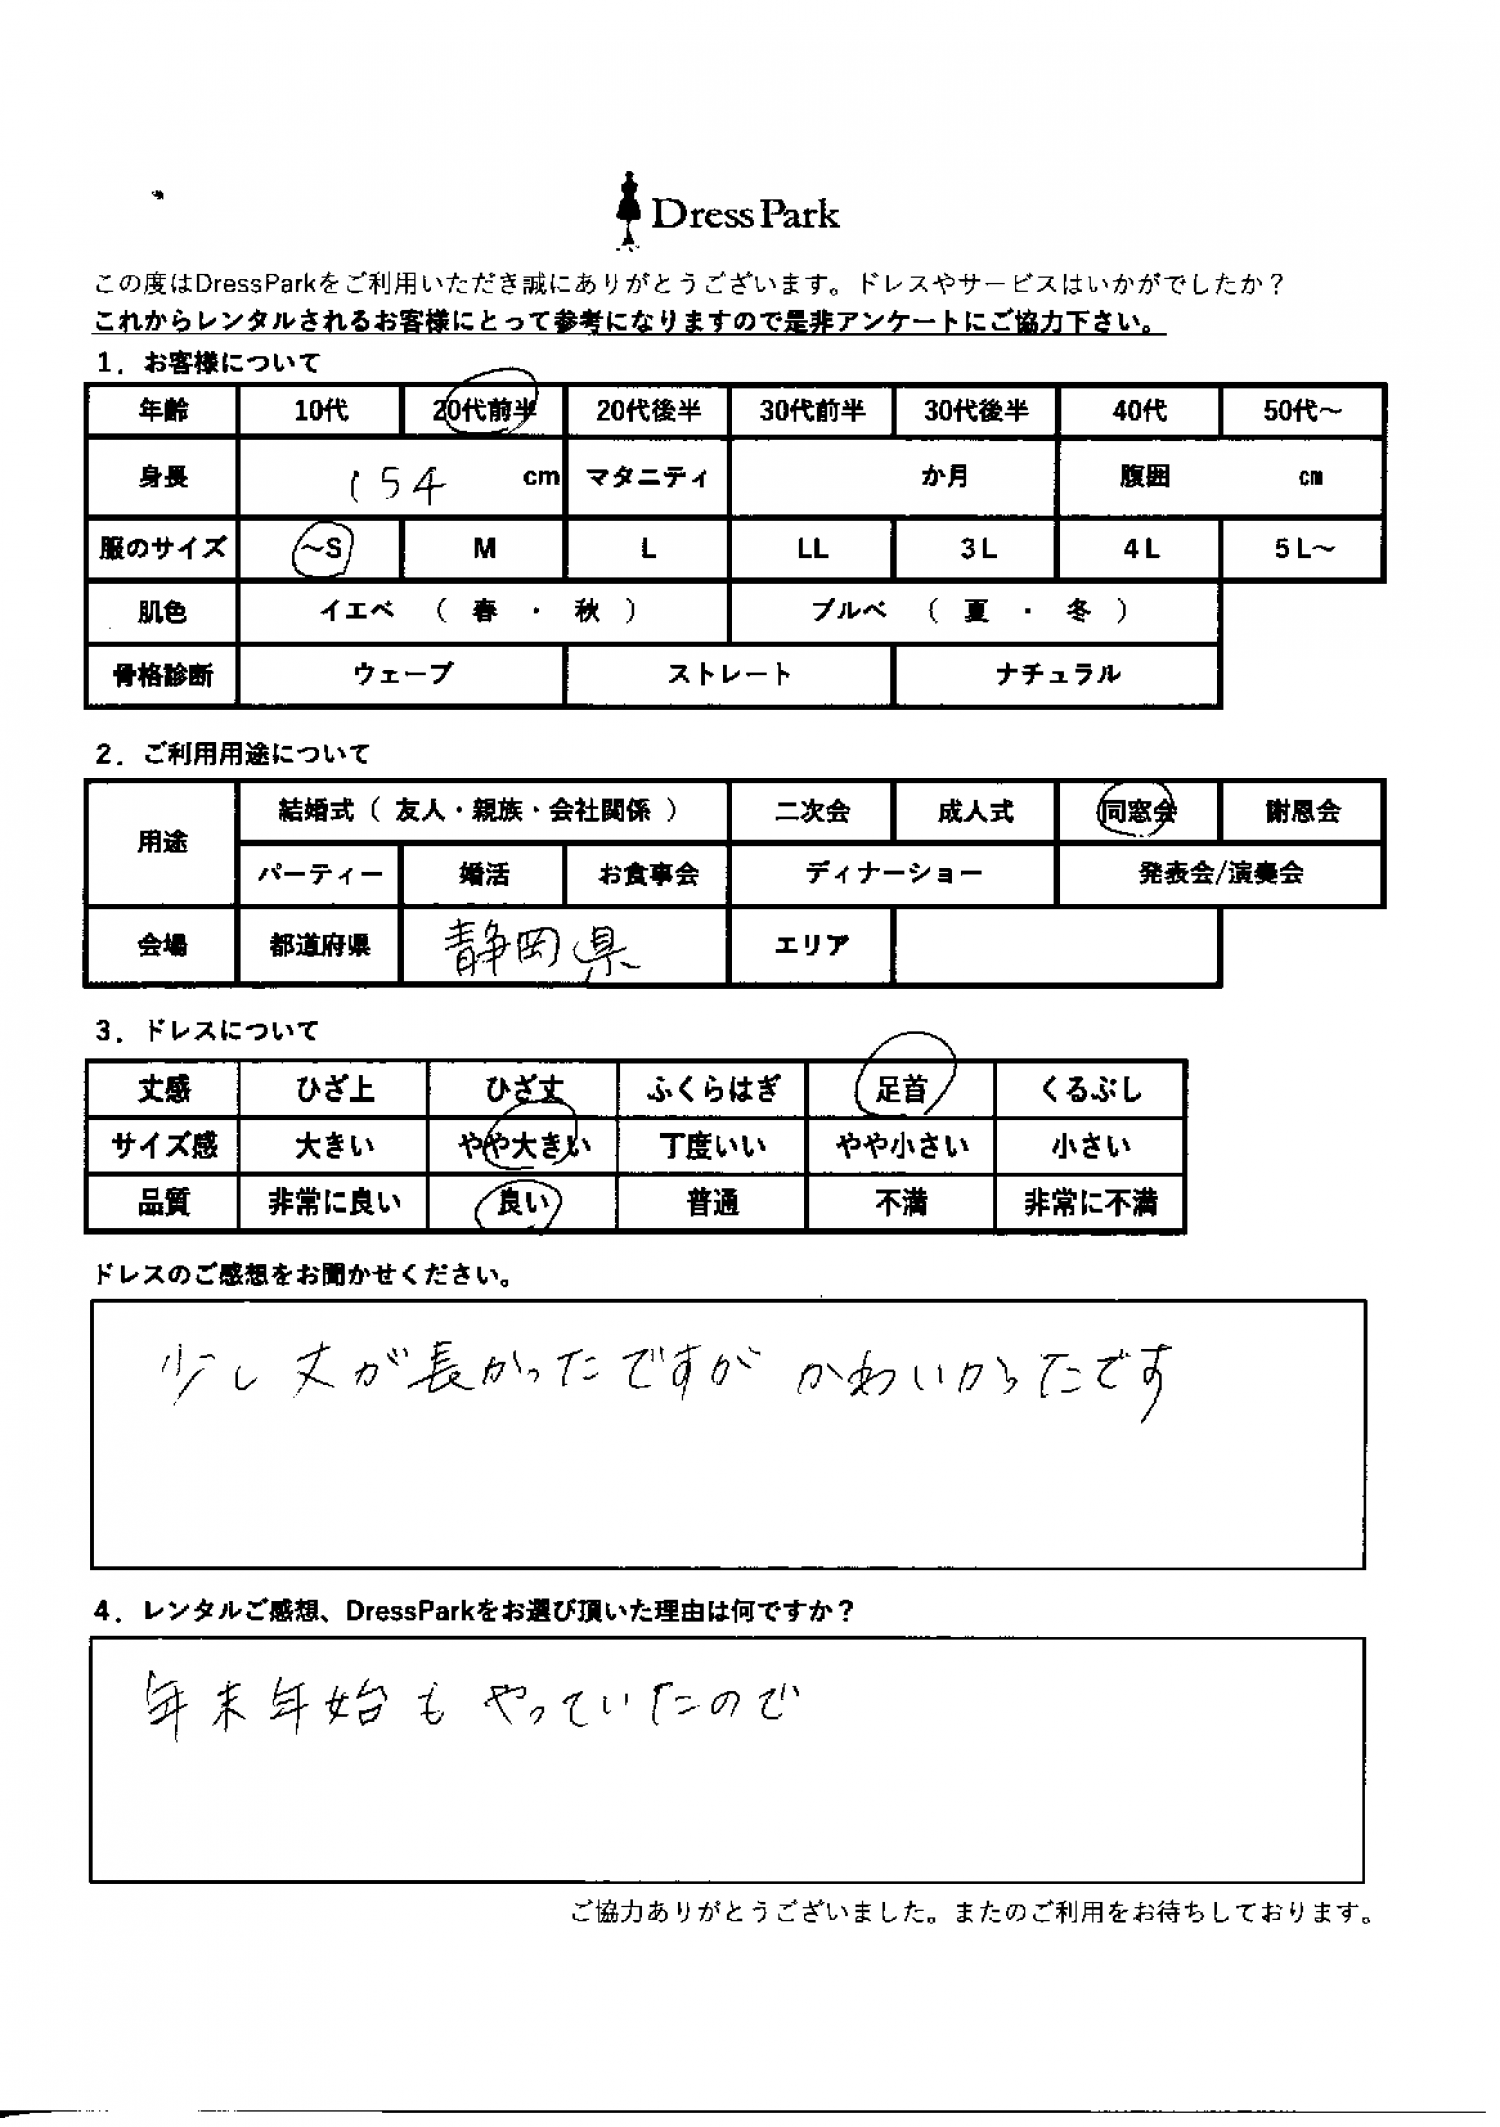 DressPark
この度はDressParkをご利用いただき誠にありがとうございます。ドレスやサービスはいかがでしたか？
これからレンタルされるお客様にとって参考になりますので是非アンケートにご協力下さい。
1．お客様について
年齢 10代 20代前半 20代後半 30代前半 30代後半 40代 50代～
身長 154 cm マタニティ か月 腹囲 cm
服のサイズ ～S M L LL 3L 4L 5L～
肌色 イエベ （ 春 ・ 秋 ） ブルベ （ 夏 ・ 冬 ）
骨格診断 ウェーブ ストレート ナチュラル
2．ご利用用途について
用途 結婚式（ 友人・親族・会社関係 ） 二次会 成人式 同窓会 謝恩会
パーティー 婚活 お食事会 ディナーショー 発表会/演奏会
会場 都道府県 静岡県 エリア
3．ドレスについて
丈感 ひざ上 ひざ丈 ふくらはぎ 足首 くるぶし
サイズ感 大きい やや大きい 丁度いい やや小さい 小さい
品質 非常に良い 良い 普通 不満 非常に不満
ドレスのご感想をお聞かせください。
少し丈が長かったですが かわいかったです
4．レンタルご感想、DressParkをお選び頂いた理由は何ですか？
年末年始もやっていたので
ご協力ありがとうございました。またのご利用をお待ちしております。